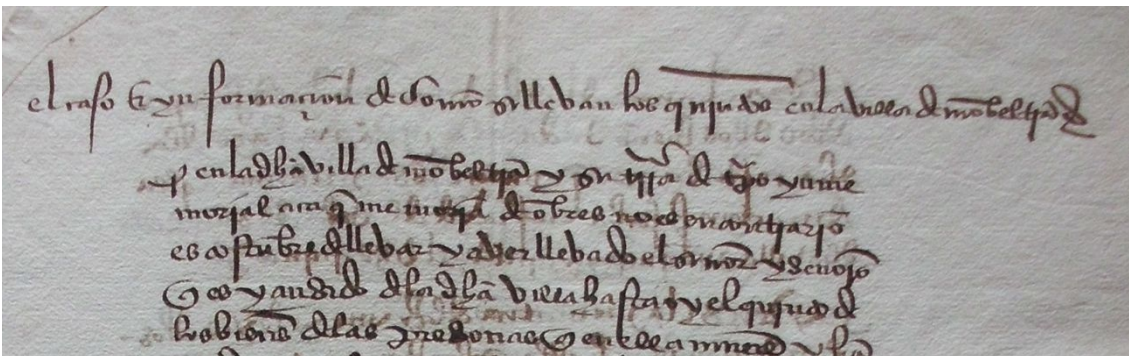 el caso e ynformaçion de como se lleban los quintos en la villa de monbeltran
en la dha villa de monbeltran y su trra de tpo ynme
morial aca q memoria de onbres no es en contrario
es costunbre de llebar y aver llebado el señor y señores
q es y an sido de la dha villa hasta oy el quinto de
los bienes de las personas q en ella mueren y han